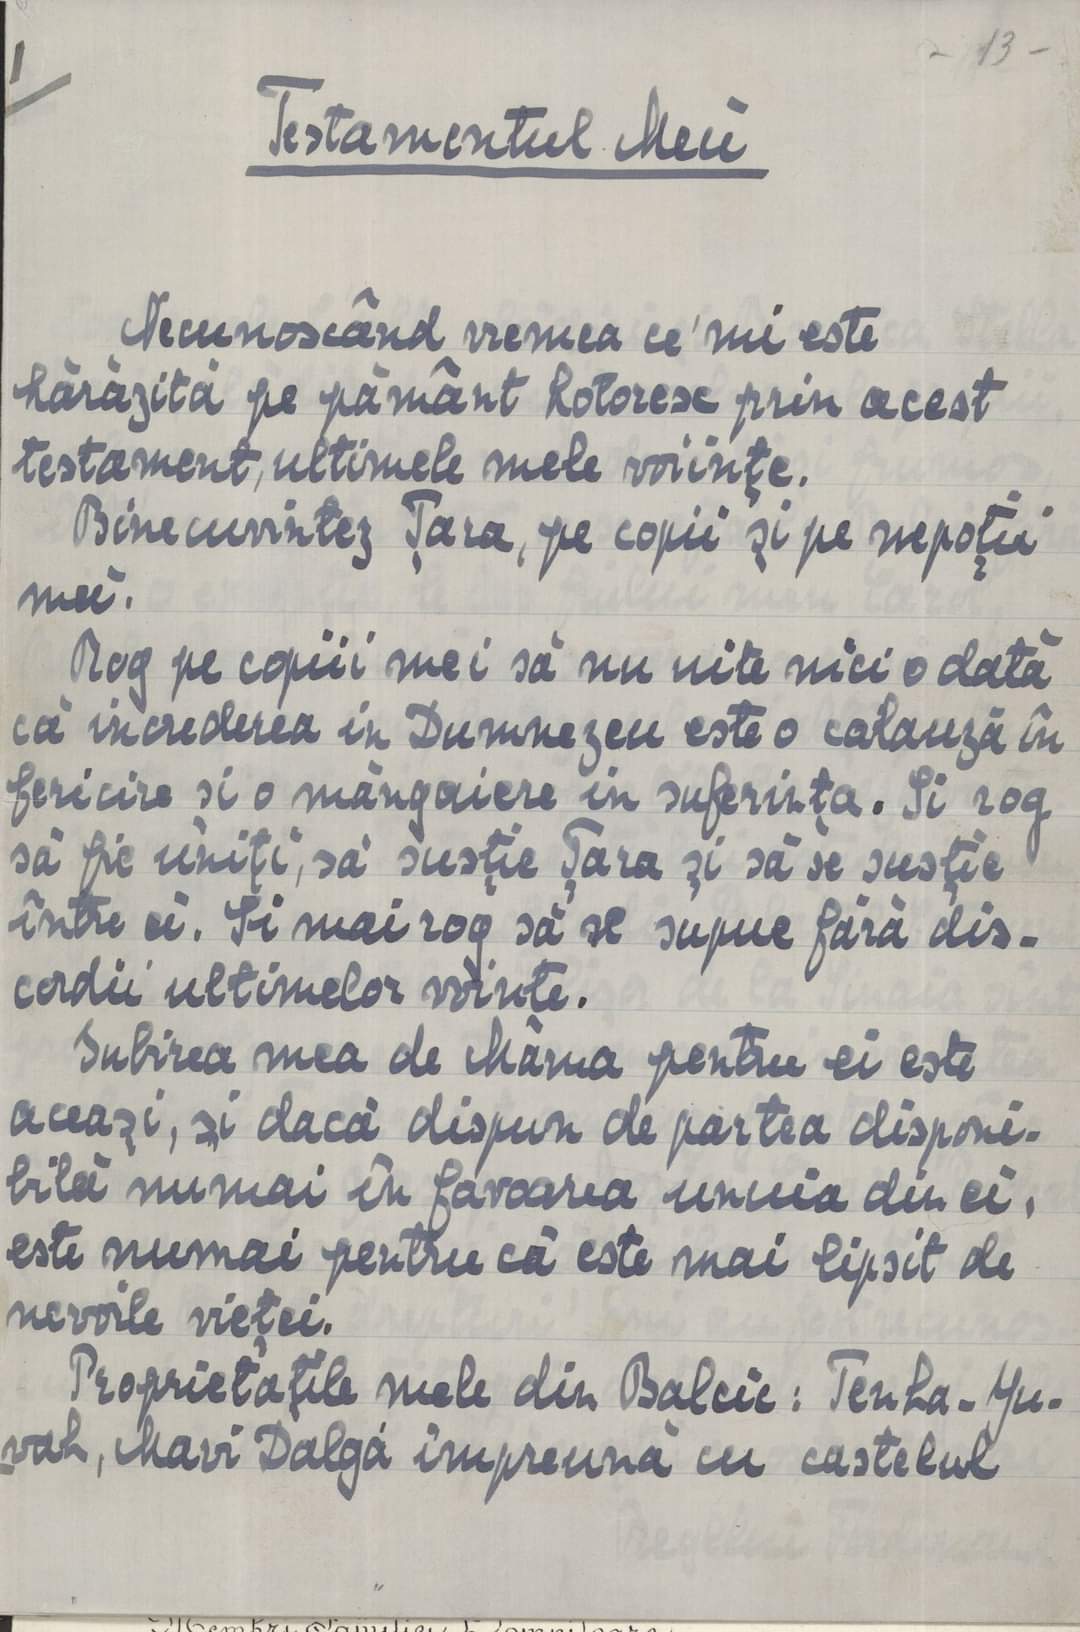 1
- 13 -
Testamentul Meu
Necunoscând vremea ce'mi este
hărăzită pe pământ hotoresc prin acest
testament, ultimele mele voiințe.
Binecuvintez Țara, pe copii și pe nepoții
mei.
Rog pe copiii mei să nu uite nici o dată
că increderea in Dumnezeu este o calauză în
fericire si o mângaiere in suferința. Si rog
să fie uniți, să susție Țara și să se susție
între ei. Si mai rog să se supue fără dis-
cordii ultimelor voințe.
Iubirea mea de Mama pentru ei este
aceași, și dacă dispun de partea disponi-
bilă numai în favoarea unuia din ei,
este numai pentru că este mai lipsit de
nevoile vieței.
Proprietațile mele din Balcic: Tenha-Yu-
vah, Mavi Dalgá împreună cu castelul